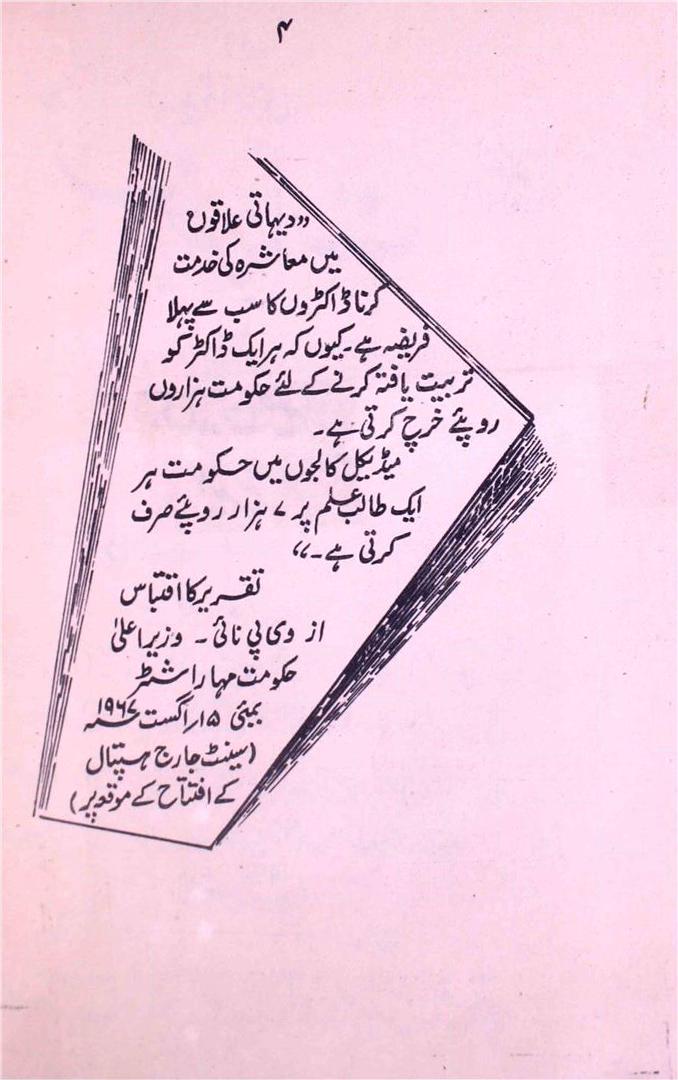 ۴
”دیہاتی علاقوں
میں معاشرہ کی خدمت
کرنا ڈاکٹروں کا سب سے پہلا
فریضہ ہے۔ کیوں کہ ہر ایک ڈاکٹر کو
تربیت یافتہ کرنے کے لئے حکومت ہزاروں
روپئے خرچ کرتی ہے۔
میڈیکل کالجوں میں حکومت ہر
ایک طالب علم پر ۷ ہزار روپئے صرف
کرتی ہے۔“
تقریر کا اقتباس
از وی پی نائی ۔ وزیر اعلیٰ
حکومت مہاراشٹر
بمبئی ۱۵/اگست ۱۹۶۷ء
(سینٹ جارج ہسپتال
کے افتتاح کے موقعہ پر)